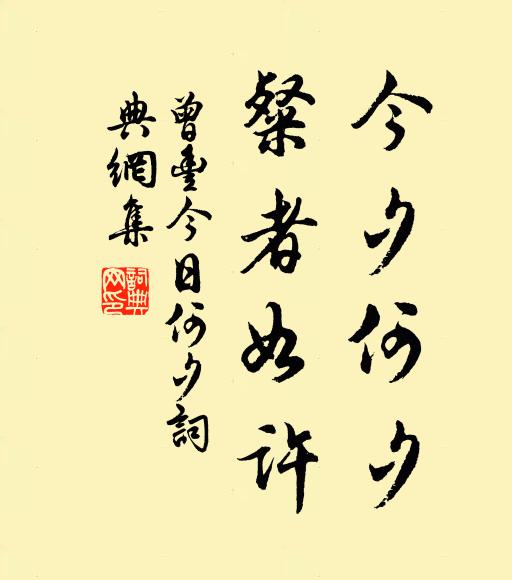 今夕何夕
粲者如許
曾豊今日何夕詞
典網集
詞典网印